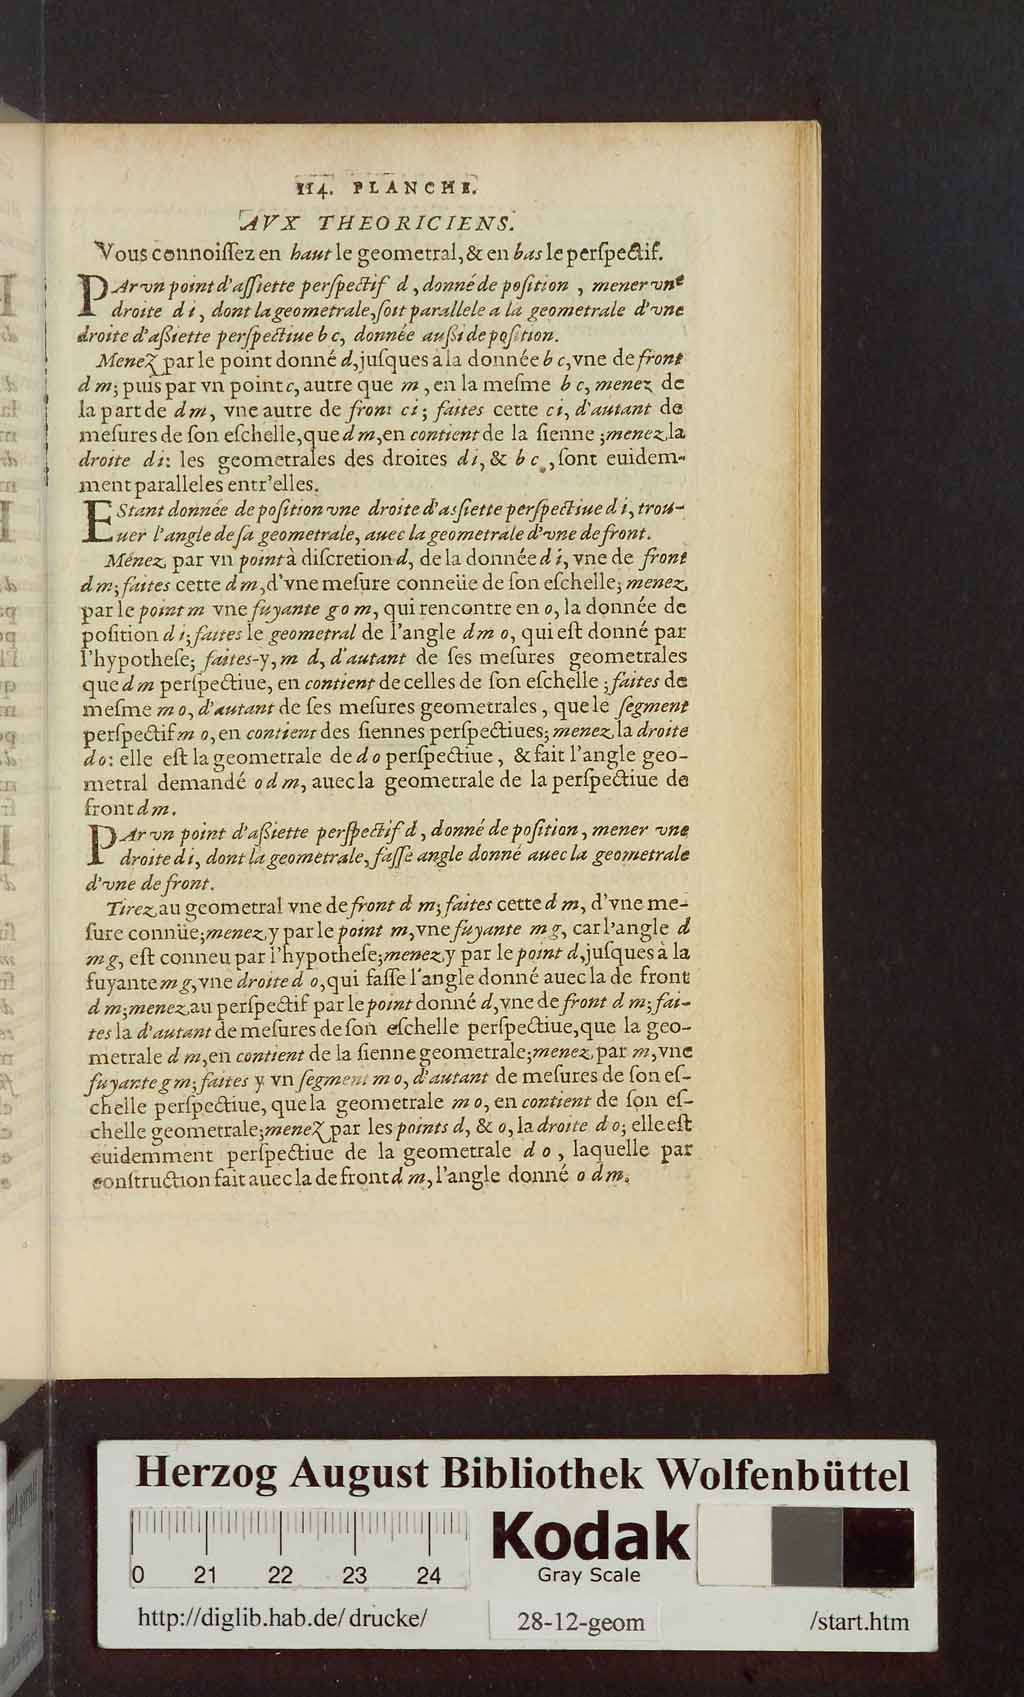 114. PLANCHE.
AVX THEORICIENS.
Vous connoiſſez en haut le geometral, & en bas le perſpectif.
PAr vn point d'aſſiette perſpectif d, donné de poſition, mener vne
droite d i, dont la geometrale, ſoit parallele a la geometrale d'vne
droite d'aſſiette perſpectiue b c, donnée auſſi de poſition.
Menez par le point donné d, juſques à la donnée b c, vne de front
d m; puis par vn point c, autre que m, en la meſme b c, menez de
la part de d m, vne autre de front c i; faites cette c i, d'autant de
meſures de ſon eſchelle, que d m, en contient de la ſienne; menez la
droite d i: les geometrales des droites d i, & b c, ſont euidem-
ment paralleles entr'elles.
EStant donnée de poſition vne droite d'aſſiette perſpectiue d i, trou-
uer l'angle de ſa geometrale, auec la geometrale d'vne de front.
Ménez, par vn point à diſcretion d, de la donnée d i, vne de front
d m; faites cette d m, d'vne meſure conneüe de ſon eſchelle; menez,
par le point m vne fuyante g o m, qui rencontre en o, la donnée de
poſition d i; faites le geometral de l'angle d m o, qui eſt donné par
l'hypotheſe; faites-y, m d, d'autant de ſes meſures geometrales
que d m perſpectiue, en contient de celles de ſon eſchelle; faites de
meſme m o, d'autant de ſes meſures geometrales, que le ſegment
perſpectif m o, en contient des ſiennes perſpectiues; menez la droite
d o: elle eſt la geometrale de d o perſpectiue, & fait l'angle geo-
metral demandé o d m, auec la geometrale de la perſpectiue de
front d m.
PAr vn point d'aſſiette perſpectif d, donné de poſition, mener vne
droite d i, dont la geometrale, faſſe angle donné auec la geometrale
d'vne de front.
Tirez au geometral vne de front d m; faites cette d m, d'vne me-
ſure connüe; menez, y par le point m, vne fuyante m g, car l'angle d
m g, eſt conneu par l'hypotheſe; menez, y par le point d, juſques à la
fuyante m g, vne droite d o, qui faſſe l'angle donné auec la de front
d m; menez, au perſpectif par le point donné d, vne de front d m; fai-
tes la d'autant de meſures de ſon eſchelle perſpectiue, que la geo-
metrale d m, en contient de la ſienne geometrale; menez, par m, vne
fuyante g m; faites y vn ſegment m o, d'autant de meſures de ſon eſ-
chelle perſpectiue, que la geometrale m o, en contient de ſon eſ-
chelle geometrale; menez par les points d, & o, la droite d o; elle eſt
euidemment perſpectiue de la geometrale d o, laquelle par
conſtruction fait auec la de front d m, l'angle donné o d m.
Herzog August Bibliothek Wolfenbüttel
0 21 22 23 24
Kodak
Gray Scale
http://diglib.hab.de/drucke/ 28-12-geom /start.htm